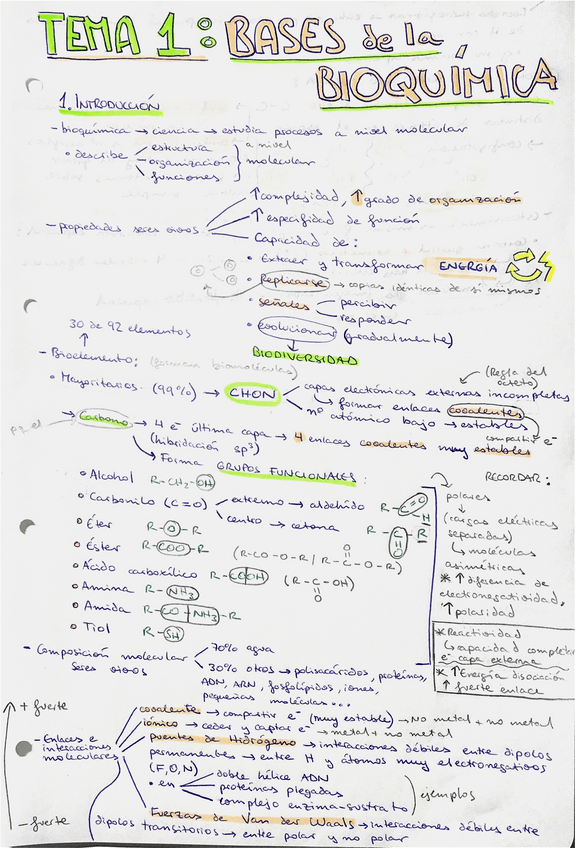 TEMA 1: BASES de la
BIOQUÍMICA
1. INTRODUCCIÓN
- bioquímica → ciencia → estudia procesos a nivel molecular
• describe estructura a nivel
organización molecular
funciones
↑ complejidad, ↑ grado de organización
↑ especifidad de función
- propiedades seres vivos
Capacidad de:
• Extraer y transformar ENERGÍA
• Replicarse → copias idénticas de sí mismos
• señales percibir
responder
• evolucionar (gradualmente)
BIODIVERSIDAD
30 de 92 elementos
- Bioelemento: (forman biomoléculas)
(Regla del
octeto)
• Mayoritarios (99%) → CHON
capas electrónicas externas incompletas
↳ formar enlaces covalentes
nº atómico bajo → estables
compartir e-
→ Carbono → 4 e- última capa → 4 enlaces covalentes muy estables
(hibridación sp³)
↳ Forma GRUPOS FUNCIONALES:
• Alcohol R-CH2-OH
• Carbonilo (C=O) extremo → aldehído R-C=O H
centro → cetona R-C-R O
• Éter R-O-R
• Éster R-COO-R (R-CO-O-R / R-C-O-R) O
• Ácido carboxílico R-COOH (R-C-OH) O
• Amina R-NH3
• Amida R-CO-NH3-R
• Tiol R-SH
RECORDAR:
polares
↓
(cargas eléctricas
separadas)
↳ moléculas
asimétricas
* ↑ diferencia de
electronegatividad,
↑ polaridad
* Reactividad
↳ capacidad completar
e- capa externa
* ↑ Energía disociación
↑ fuerte enlace
- Composición molecular
seres vivos
70% agua
30% otros → polisacáridos, proteínas,
ADN, ARN, fosfolípidos, iones,
pequeñas moléculas...
+ fuerte
- fuerte
- Enlaces e
interacciones
moleculares
covalente → compartir e- (muy estable) → No metal + no metal
iónico → ceder y captar e- → metal + no metal
puentes de Hidrógeno → interacciones débiles entre dipolos
permanentes → entre H y átomos muy electronegativos
(F, O, N)
• en doble hélice ADN
proteínas plegadas
complejo enzima-sustrato
ejemplos
Fuerzas de Van der Waals → interacciones débiles entre
dipolos transitorios → entre polar y no polar